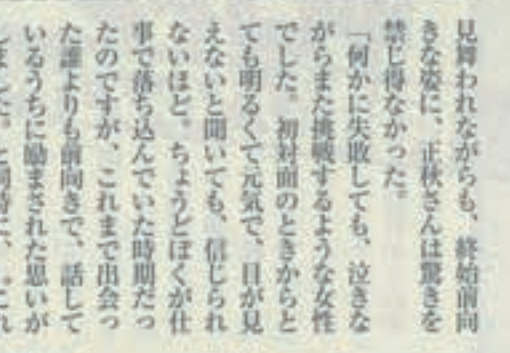 見舞われながらも、終始前向
きな姿に、正秋さんは驚きを
禁じ得なかった。
「何かに失敗しても、泣きな
がらまた挑戦するような女性
でした。初対面のときからと
ても明るくて元気で、目が見
えないと聞いても、信じられ
ないほど。ちょうどぼくが仕
事で落ち込んでいた時期だっ
たのですが、これまで出会っ
た誰よりも前向きで、話して
いるうちに励まされた思いが
しました。と同時に、